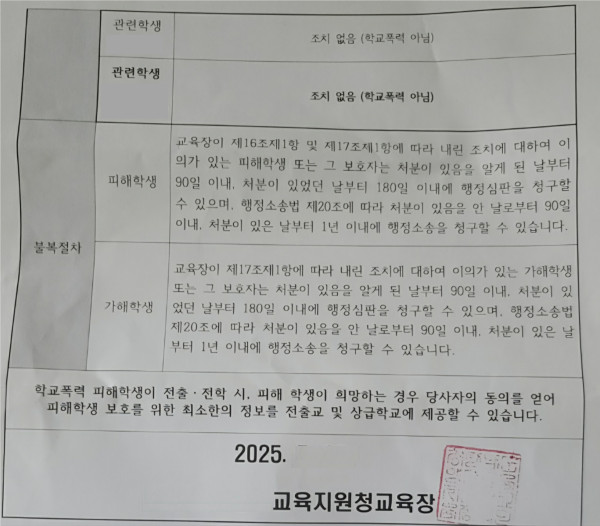 관련학생
조치 없음 (학교폭력 아님)
관련학생
조치 없음 (학교폭력 아님)
불복절차
피해학생
교육장이 제16조제1항 및 제17조제1항에 따라 내린 조치에 대하여 이
의가 있는 피해학생 또는 그 보호자는 처분이 있음을 알게 된 날부터
90일 이내, 처분이 있었던 날부터 180일 이내에 행정심판을 청구할
수 있으며, 행정소송법 제20조에 따라 처분이 있음을 안 날로부터 90일
이내, 처분이 있은 날부터 1년 이내에 행정소송을 청구할 수 있습니다.
가해학생
교육장이 제17조제1항에 따라 내린 조치에 대하여 이의가 있는 가해학생
또는 그 보호자는 처분이 있음을 알게 된 날부터 90일 이내, 처분이 있
었던 날부터 180일 이내에 행정심판을 청구할 수 있으며, 행정소송법
제20조에 따라 처분이 있음을 안 날로부터 90일 이내, 처분이 있은 날
부터 1년 이내에 행정소송을 청구할 수 있습니다.
학교폭력 피해학생이 전출·전학 시, 피해 학생이 희망하는 경우 당사자의 동의를 얻어
피해학생 보호를 위한 최소한의 정보를 전출교 및 상급학교에 제공할 수 있습니다.
2025.
교육지원청교육장